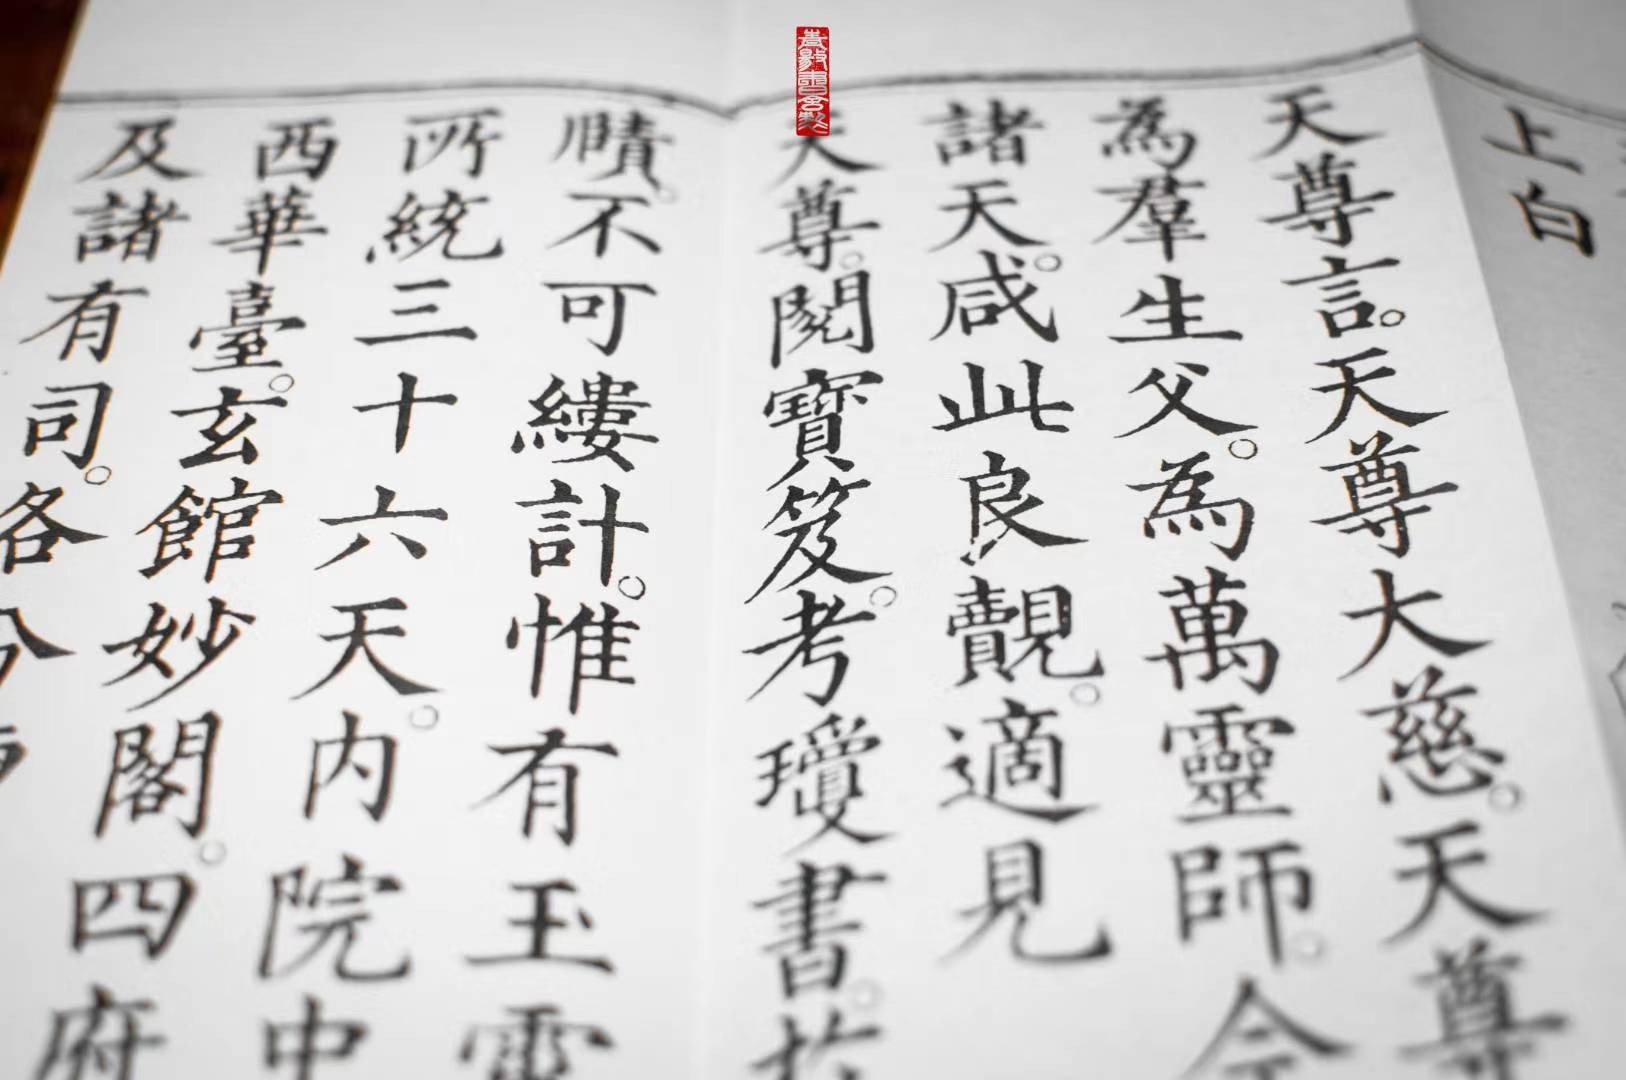 上白
天尊言。天尊大慈。天尊
為羣生父。為萬靈師。今
諸天。咸此良覿。適見
天尊。閱寶笈。考瓊書。於
賾。不可縷計。惟有玉霄
所統三十六天。內院中
西華臺。玄館妙閣。四府
及諸有司。各分